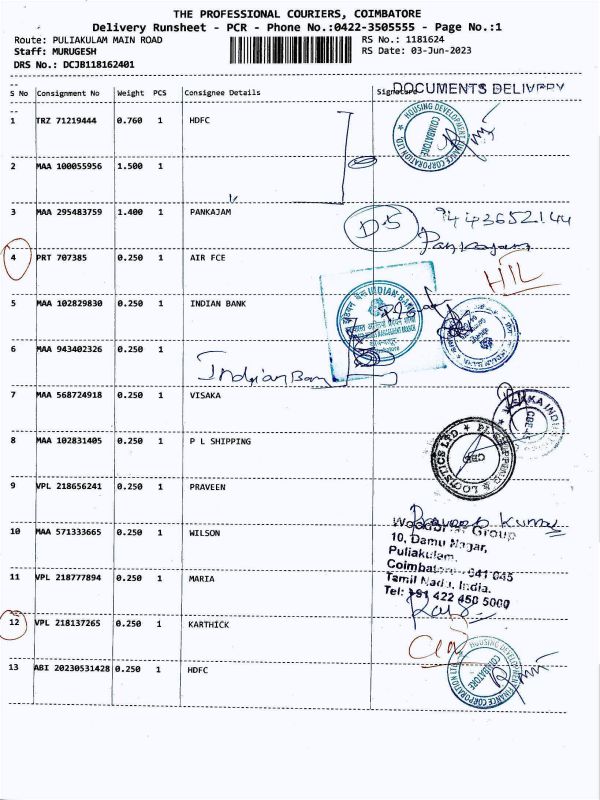 THE PROFESSIONAL COURIERS, COIMBATORE
Delivery Runsheet - PCR - Phone No.:0422-3505555 - Page No.:1
Route: PULIAKULAM MAIN ROAD RS No.: 1181624
Staff: MURUGESH RS Date: 03-Jun-2023
DRS No.: DCJB118162401
DOCUMENTS DELIVERY
S No Consignment No Weight PCS Consignee Details Signature
1 TRZ 71219444 0.760 1 HDFC
HOUSING DEVELOPMENT FINANCE CORPORATION LTD. COIMBATORE
2 MAA 100055956 1.500 1
3 MAA 295483759 1.400 1 PANKAJAM D5 9443652144
Pankajam
4 PRT 707385 0.250 1 AIR FCE
HIL
5 MAA 102829830 0.250 1 INDIAN BANK
INDIAN BANK
6 MAA 943402326 0.250 1
Indian Bank
7 MAA 568724918 0.250 1 VISAKA
VISAKA INDUSTRIES
CBE-45
8 MAA 102831405 0.250 1 P L SHIPPING
P L SHIPPING & LOGISTICS LTD. CBE
9 VPL 218656241 0.250 1 PRAVEEN
Praveen Kumar
10 MAA 571333665 0.250 1 WILSON
Group
10, Damu Nagar,
Puliakulam,
Coimbatore - 641 045
Tamil Nadu, India.
Tel: +91 422 450 5000
11 VPL 218777894 0.250 1 MARIA
12 VPL 218137265 0.250 1 KARTHICK
13 ABI 20230531428 0.250 1 HDFC
HOUSING DEVELOPMENT FINANCE CORPORATION LTD. COIMBATORE